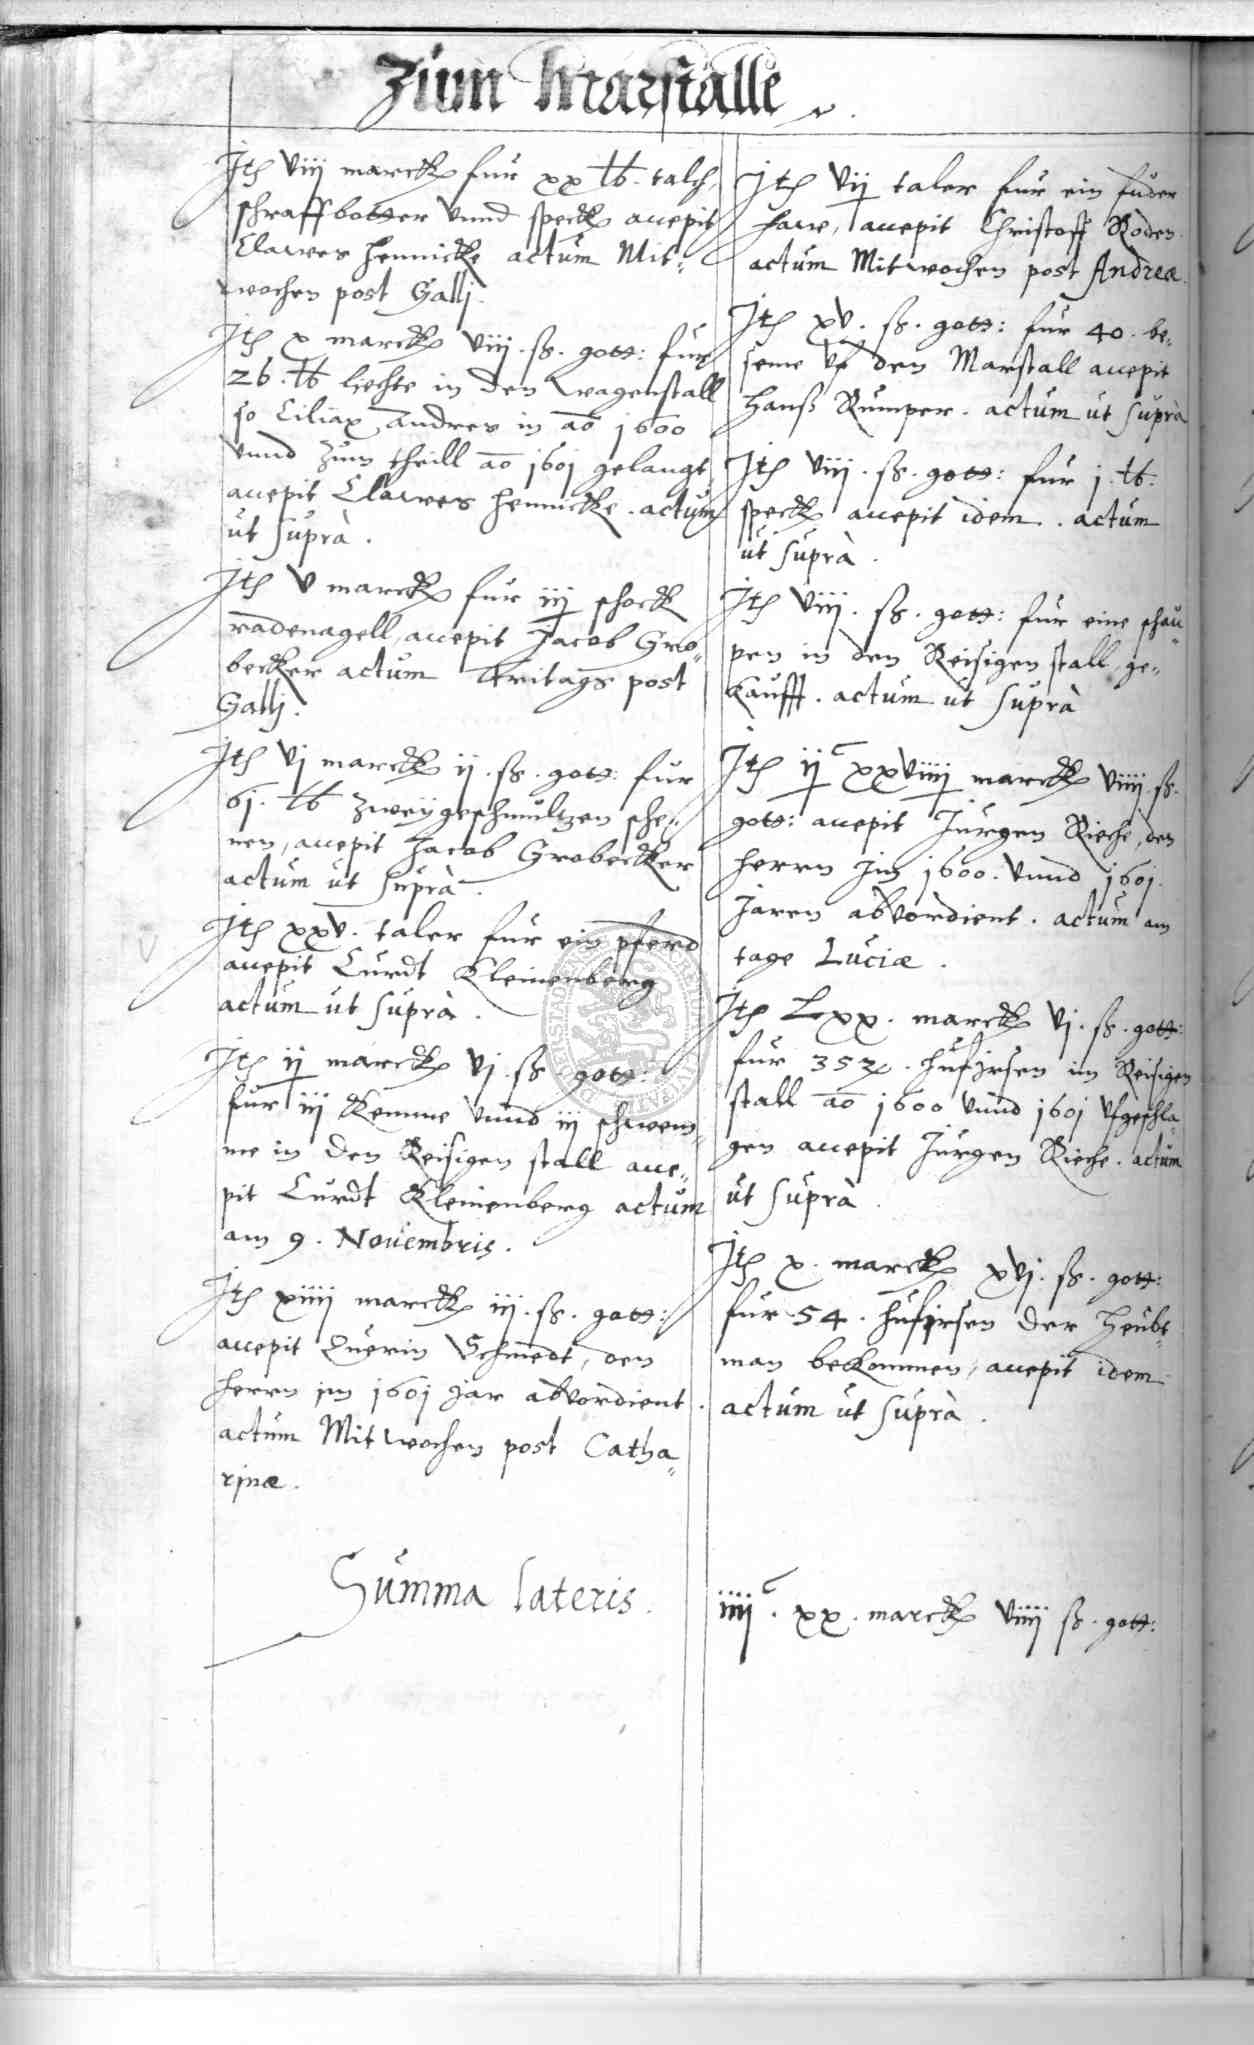 Zum Marstalle
Ite viij marck fur xx lb. talch
schraffbotter unnd speck accepit
Clawes Hennicke actum Mit„
wochen post Galli.
Ite x marck viij. ß. gott: fur
26. lb liechte in den wagenstall
so Ciliax Andres in ao 1600
unnd zum theill ao 1601 gelangt
accepit Clawes Hennicke. actum
ut suprà.
Ite v marck fur iij schock
radenagell, accepit Jacob Gro„
becker actum Fritags post
Galli.
Ite vj marck ij. ß. gott: fur
61. lb zweygeschmultzen sche„
nen, accepit Jacob Grobecker
actum ut suprà.
Ite xxv. taler fur ein pferd
accepit Curdt Kleinenberg
actum ut suprà.
Ite ij marck vj. ß gott:
fur iij Kemme unnd iij schwem„
me in den Reisigen stall acce„
pit Curdt Kleinenberg actum
am 9. Novembris.
Ite xiiij marck iij. ß. gott:
accepit Querin Schmedt, den
herrn im 1601 jar abvordient.
actum Mitwochen post Catha„
rinæ.
Summa lateris.
Ite vij taler fur ein fuder
haw, accepit Christoff Roden
actum Mitwochen post Andreæ.
Ite xv. ß. gott: fur 40. be„
seme uf den Marstall accepit
Hanß Rumper. actum ut suprà
Ite viij. ß. gott: fur j. lb.
speck accepit idem. actum
ut suprà.
Ite viij. ß. gott: fur eine schau„
pen in den Reisigen stall ge„
kaufft. actum ut suprà
Ite ij c xxviiij marck viiij. ß.
gott: accepit Jurgen Rieche, den
herrn Im 1600. unnd 1601.
Jaren abvordient. actum am
tage Luciæ.
Ite Lxx. marck vj. ß. gott:
fur 352. hufirsen im Reisigen
stall ao 1600 unnd 1601 ufgeschla„
gen accepit Jurgen Rieche. actum
ut suprà.
Ite x. marck xvj. ß. gott:
fur 54. hufirsen der Heubt„
man bekommen, accepit idem
actum ut suprà.
iiij c. xx. marck viiij ß. gott: